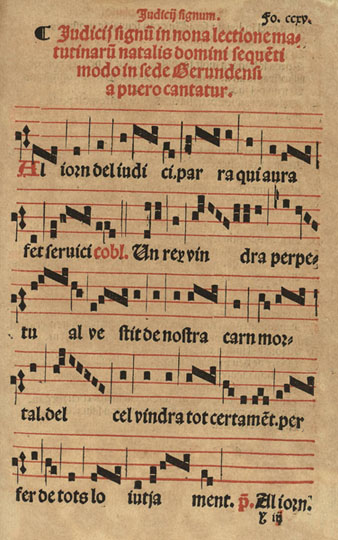 Judicij signum. Fo. ccxv.
¶ Judicij signū in nona lectione ma-
tutinarū natalis domini sequēti
modo in sede Gerundensi
a puero cantatur.
Al iorn del iudi ci. par ra qui aura
fet seruici cobl. Un rey vin dra perpe-
tu al ve stit de nostra carn mor-
tal. del cel vindra tot certamēt. per
fer de tots lo iutja ment. p. Al iorn.